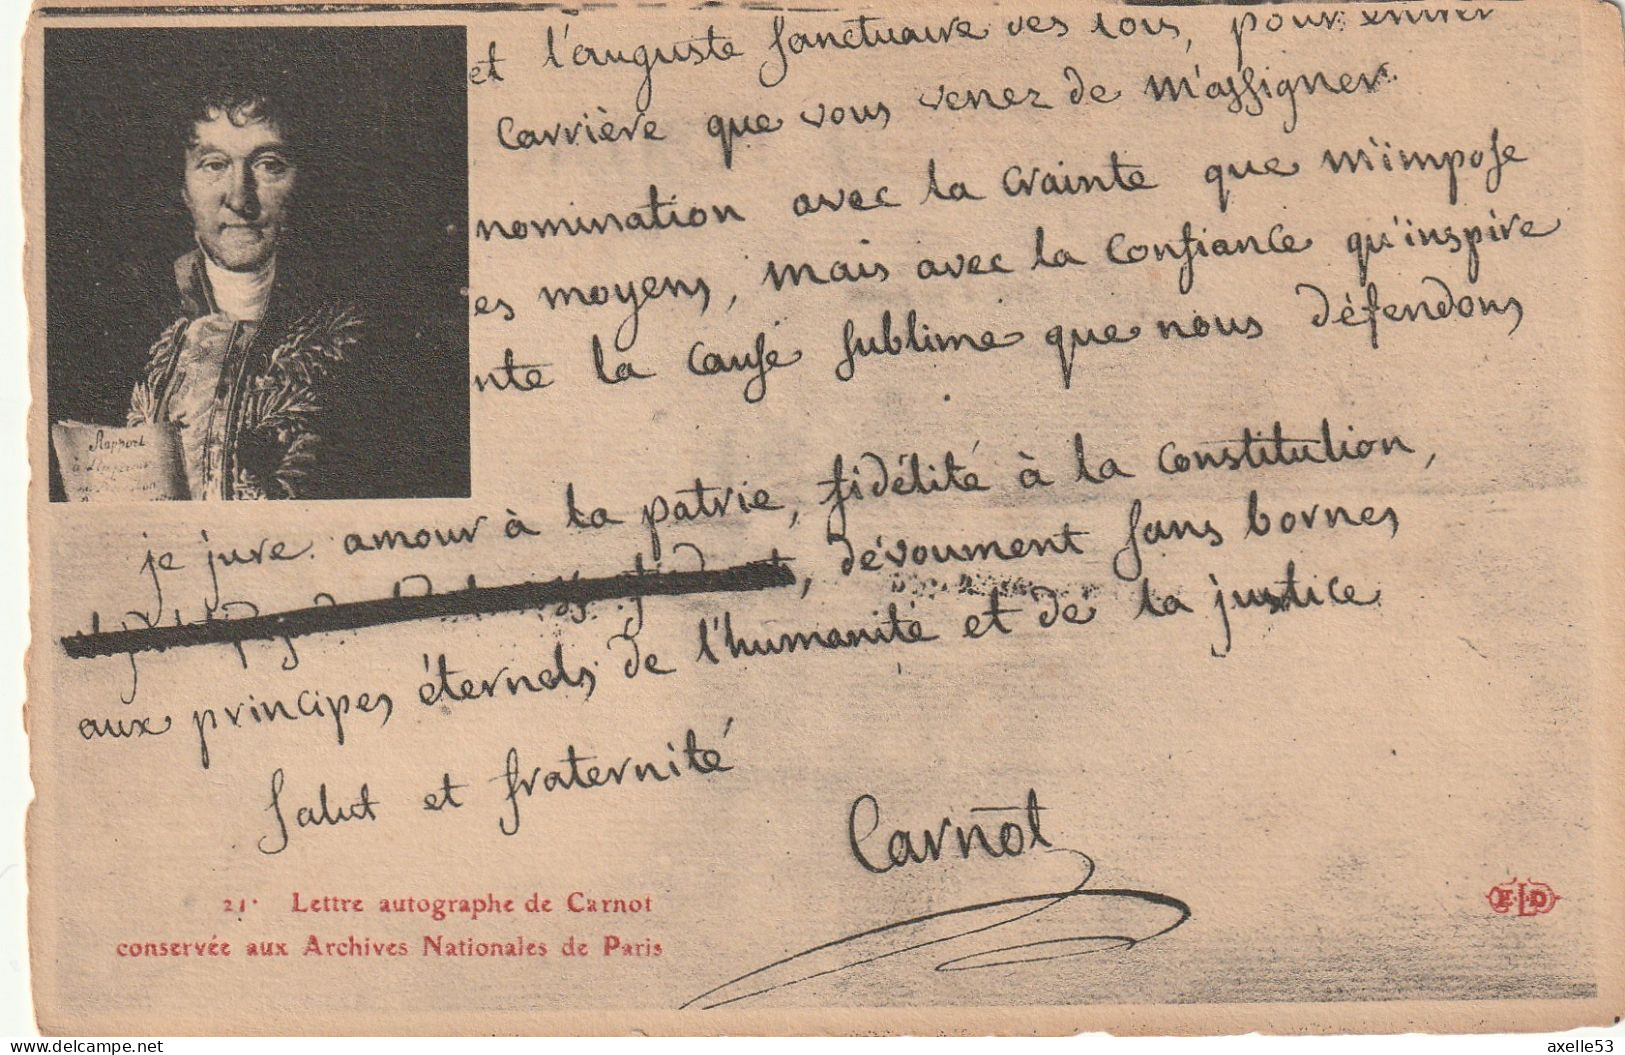 et l'auguste sanctuaire des lois, pour entrer
carrière que vous venez de m'assigner.
nomination avec la crainte que m'impose
es moyens, mais avec la confiance qu'inspire
nte la cause sublime que nous défendons
Rapport
à l'Empereur
je jure amour à la patrie, fidélité à la constitution,
, dévoument sans bornes
aux principes éternels de l'humanité et de la justice
Salut et fraternité
Carnot
21. Lettre autographe de Carnot
conservée aux Archives Nationales de Paris
ELD
delcampe.net
axelle53